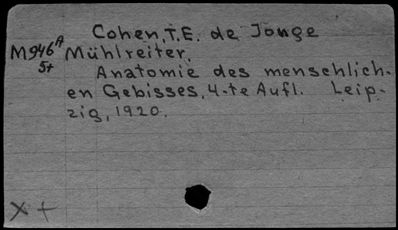 Cohen, T.E. de Jonge
M946A Mühlreiter.
5t Anatomie des menschlich-
en Gebisses, 4-te Aufl. Leip-
zig, 1920.
X +